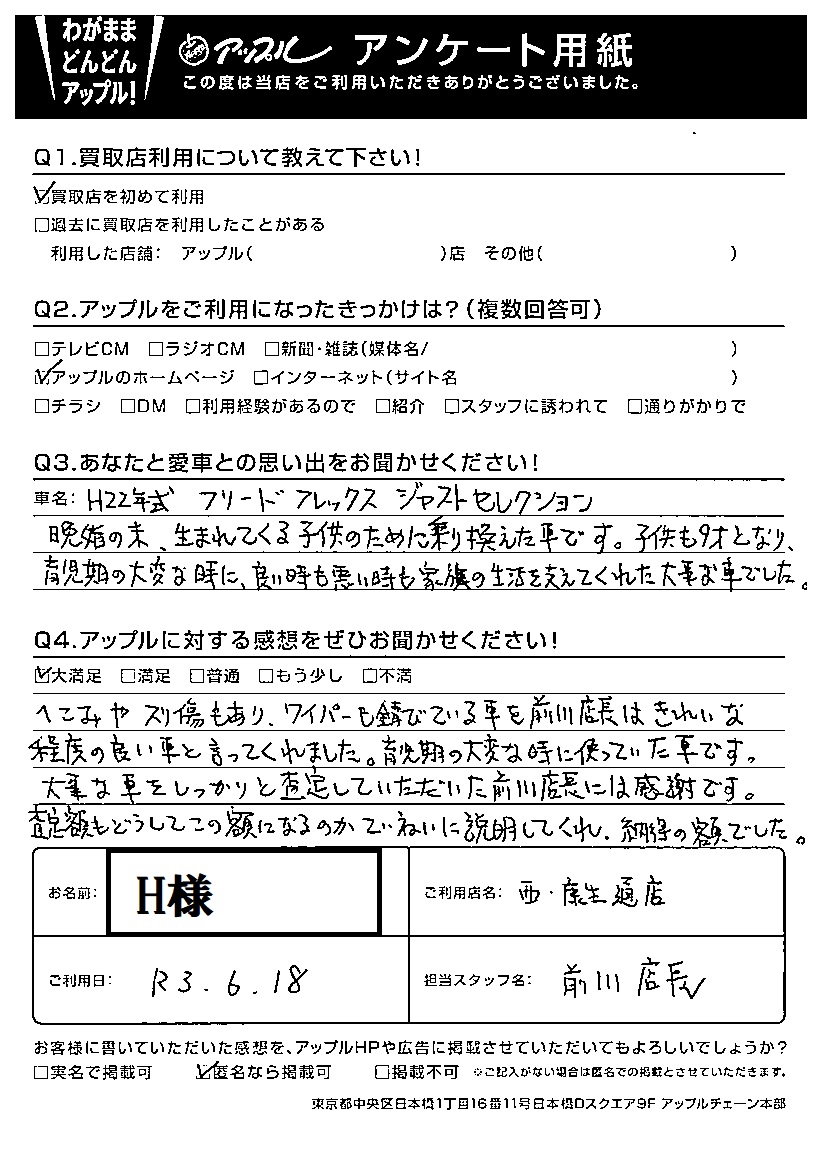 わがまま
どんどん
アップル!
アップル アンケート用紙
この度は当店をご利用いただきありがとうございました。
Q1.買取店利用について教えて下さい!
☑買取店を初めて利用
□過去に買取店を利用したことがある
利用した店舗: アップル( )店 その他( )
Q2.アップルをご利用になったきっかけは?(複数回答可)
□テレビCM □ラジオCM □新聞・雑誌(媒体名/ )
☑アップルのホームページ □インターネット(サイト名 )
□チラシ □DM □利用経験があるので □紹介 □スタッフに誘われて □通りがかりで
Q3.あなたと愛車との思い出をお聞かせください!
車名: H22年式 フリード フレックス ジャストセレクション
晩婚の末、生まれてくる子供のために乗り換えた車です。子供も9才となり、
育児期の大変な時に、良い時も悪い時も家族の生活を支えてくれた大事な車でした。
Q4.アップルに対する感想をぜひお聞かせください!
☑大満足 □満足 □普通 □もう少し □不満
へこみや スリ傷もあり、ワイパーも錆びている車を前川店長はきれいな
程度の良い車と言ってくれました。育児期の大変な時に使っていた車です。
大事な車をしっかりと査定していただいた前川店長には感謝です。
査定額もどうしてこの額になるのかていねいに説明してくれ、納得の額でした。
お名前: H様
ご利用店名: 西・康生通店
ご利用日: R3.6.18
担当スタッフ名: 前川 店長
お客様に書いていただいた感想を、アップルHPや広告に掲載させていただいてもよろしいでしょうか?
□実名で掲載可 ☑匿名なら掲載可 □掲載不可 ※ご記入がない場合は匿名での掲載とさせていただきます。
東京都中央区日本橋1丁目16番11号日本橋Dスクエア9F アップルチェーン本部